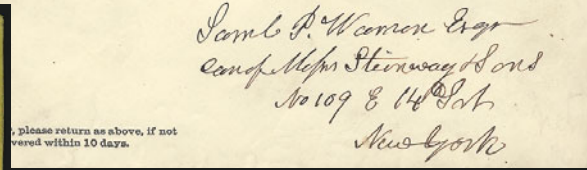 Saml P. Warren Esqr
care of Messrs Steinway & Sons
No 109 E 14th Srt
New York
, please return as above, if not
vered within 10 days.